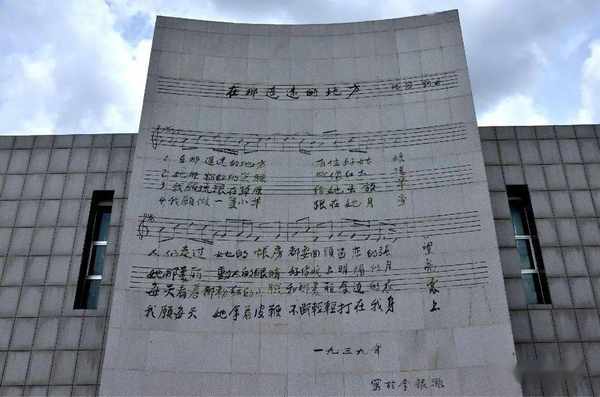 在那遥远的地方
1.在那遥远的地方 有位好姑娘
2.她那粉红的笑脸 好像红太阳
3.我愿流浪在草原 跟她去放羊
4.我愿做一只小羊 跟在她身旁
人们走过她的帐房都要回头留恋的张望
她那美丽动人的眼睛好像晚上明媚的月亮
每天看着那粉红的小脸和那美丽金边的衣裳
我愿每天她拿着皮鞭不断轻轻打在我身上
一九三九年
写於金银滩